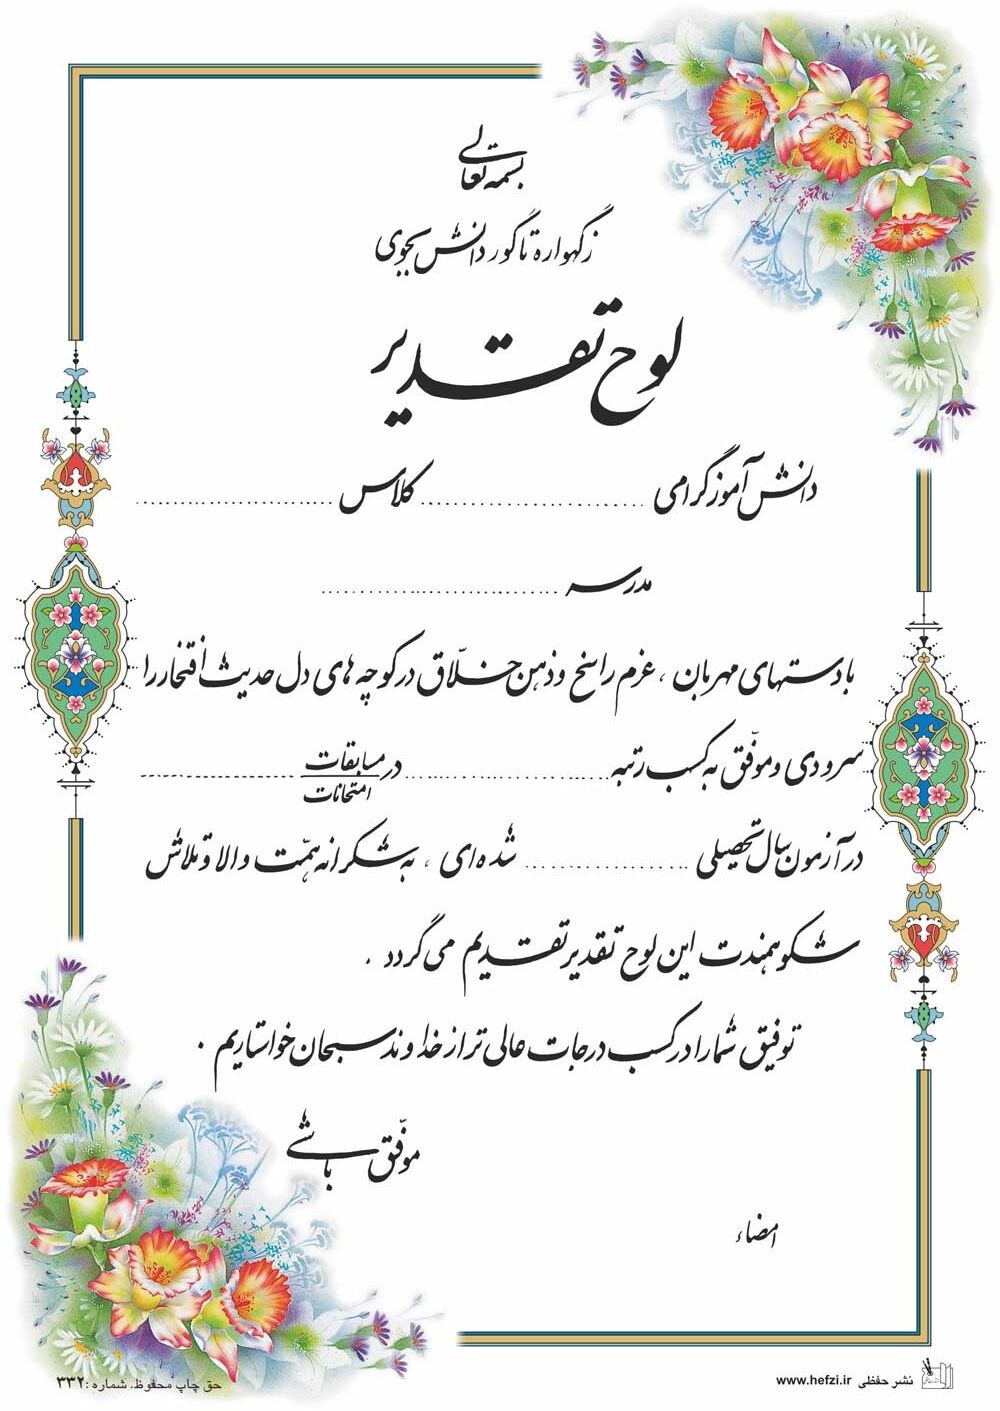 بسمه تعالی
ز گهواره تا گور دانش بجوی
لوح تقدیر
دانش آموز گرامی .............................. کلاس ..............................
مدرسه ..............................
با دستهای مهربان ، عزم راسخ و ذهن خلّاق در کوچه های دل حدیث افتخار را
سرودی و موفّق به کسب رتبه .............................. در مسابقات ..............................
امتحانات
در آزمون سال تحصیلی .............................. شده ای ، به شکرانه همّت والا و تلاش
شکوهمندت این لوح تقدیر تقدیم می گردد .
توفیق شما را در کسب درجات عالی تر از خداوند سبحان خواستاریم .
موفّق باشی
امضاء
حق چاپ محفوظ. شماره :۳۳۲
نشر حفظی www.hefzi.ir